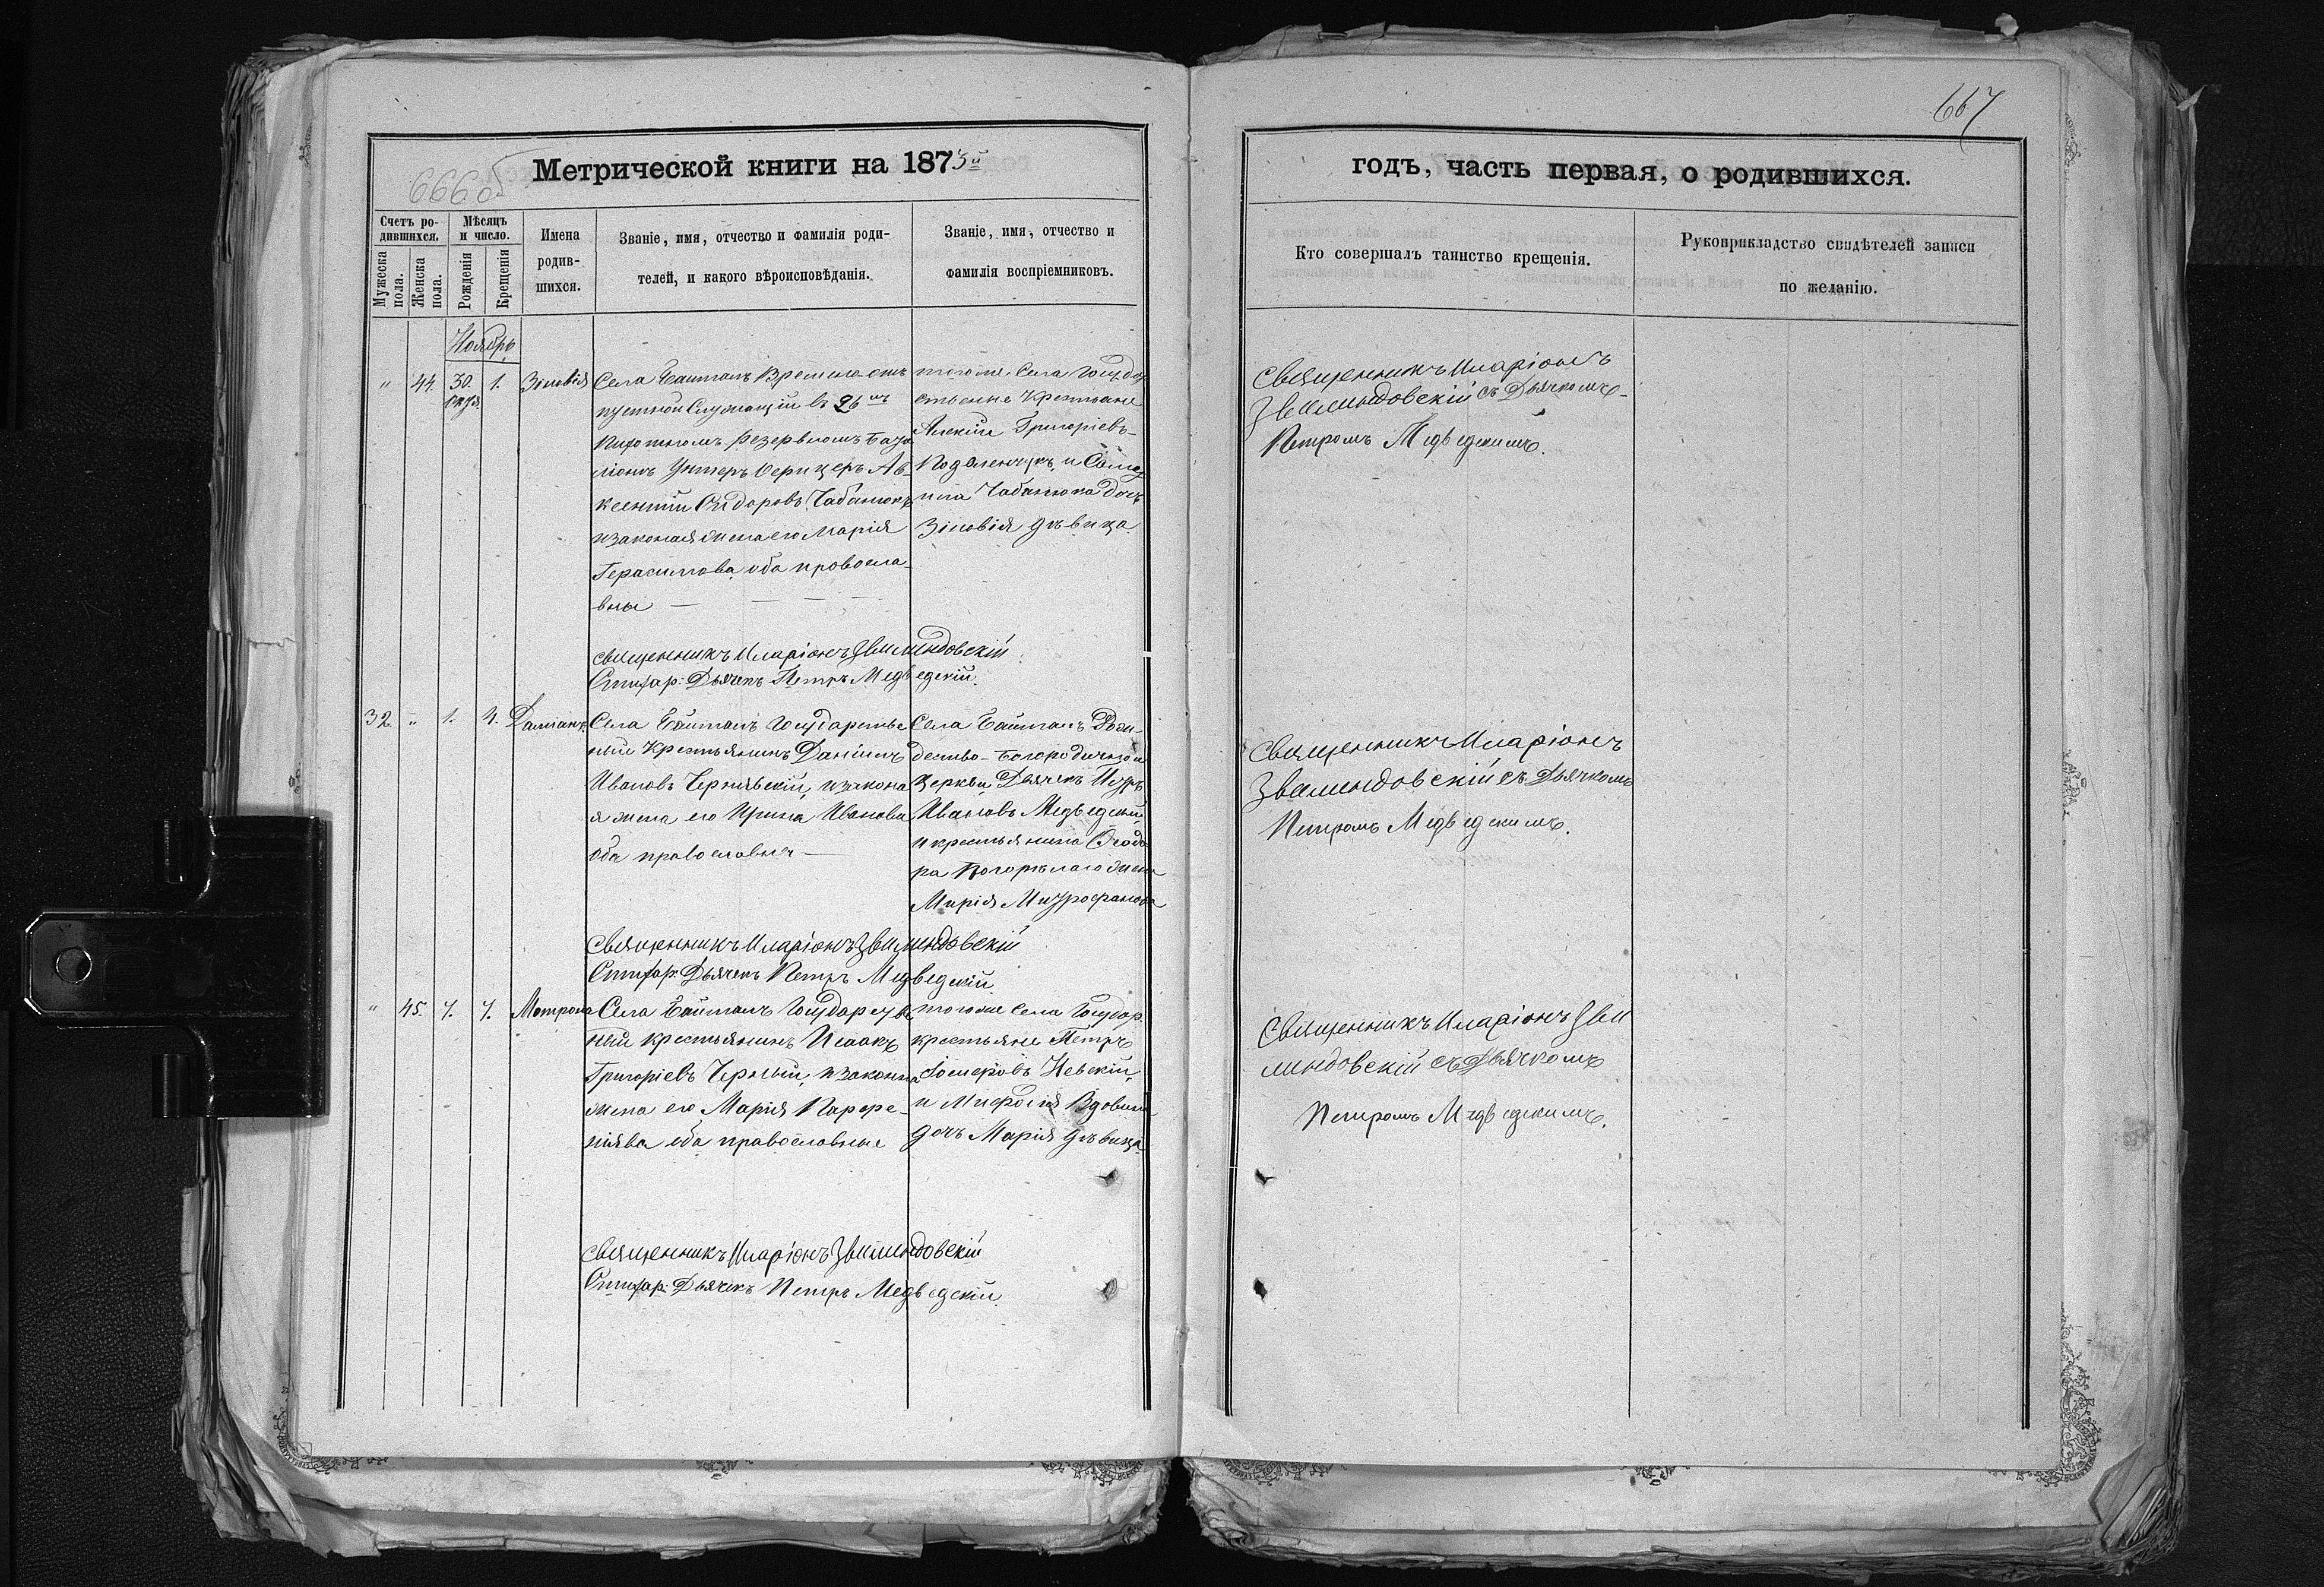 667
666об
Метрической книги на 1873й
годъ, часть первая, о родившихся.
Счетъ ро-
дившихся.
Мужеска
пола.
Женска
пола.
Мѣсяцъ
и число.
Рожденія
Крещенія
Имена
родив-
шихся.
Званіе, имя, отчество и фамилія роди-
телей, и какого вѣроисповѣданія.
Званіе, имя, отчество и
фамилія воспріемниковъ.
Кто совершалъ таинство крещенія.
Рукоприкладство свидѣтелей записи
по желанію.
Ноябрь
" 44. 30. 1. Зіновія
Села Байталъ Временно от
пускной Служащій въ 26мъ
резервномъ Бата
ліонѣ Унтеръ Офицеръ Ав-
ксентій Сидоровъ Чабанюкъ
и законая жена его Марія
Герасимова, оба правосла-
вные
тогоже Села Государ
ственне Крестьяне
Алексѣй Григоріевъ
и
Чабанюка дочь
Зіновія дѣвица
Священникъ Иларіонъ
Звиминдовскій съ Дьячкомъ
Петромъ Медведскимъ.
Священникъ Иларіонъ Звиминдовскій
Дьячекъ Петръ Медведскій.
32 " 1. 4. Даміанъ.
Села Байталъ Государстве
ный Крестьянинъ Даніилъ
Ивановъ Чернявскій, и закона
я жена его Ирина Иванова
оба православне
Села Байталъ Рож-
дество-Богородичной
Церкви Дьячекъ Петръ
Ивановъ Медведскій
и крестьянина Феодо
ра Погорѣлаго жена
Марія Митрофанова
Священникъ Иларіонъ
Звиминдовскій съ Дьячкомъ
Петромъ Медведскимъ.
Священникъ Иларіонъ Звиминдовскій
Дьячекъ Петръ Медведскій
" 45. 7. 7. Матрона
Села Байталъ Государстве
ный крестьянинъ Исаакъ
Григоріевъ Черный, и законна
жена его Марія Парфе-
ніява оба православные
тогоже Села Государ.
крестьяне Петръ
Невскій,
и
дочь Марія дѣвица
Священникъ Иларіонъ Зви
миндовскій съ Дьячкомъ
Петромъ Медведскимъ.
Священникъ Иларіонъ Звиминдовскій
Дьячекъ Петръ Медведскій